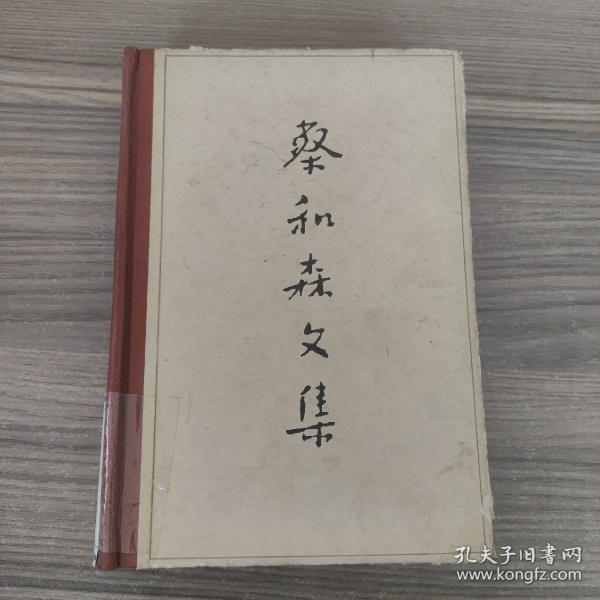 蔡和森文集
孔夫子旧書网
www.kongfz.com